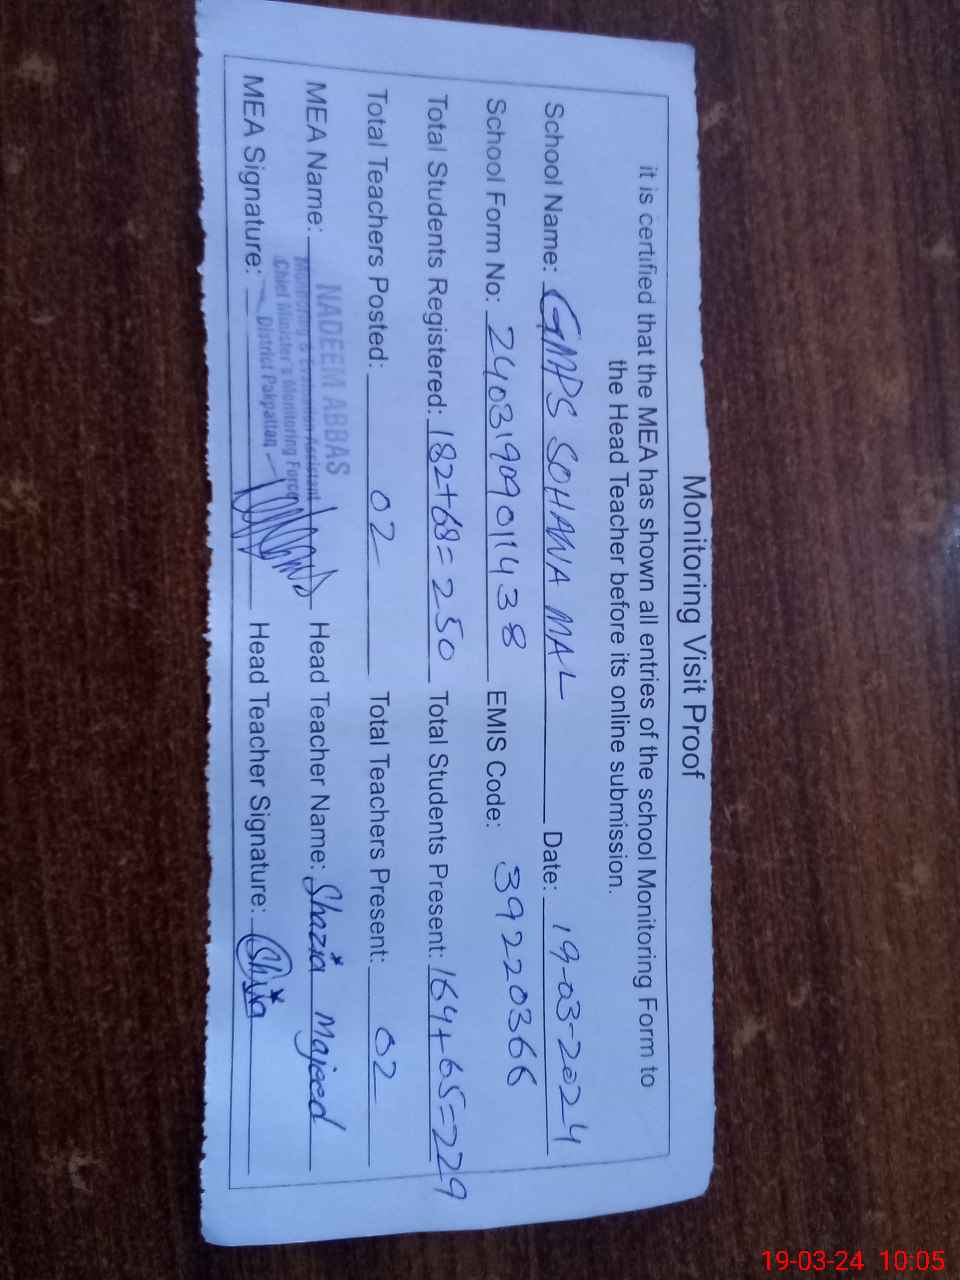 Monitoring Visit Proof
it is certified that the MEA has shown all entries of the school Monitoring Form to
the Head Teacher before its online submission.
School Name: GMPS SOHAWA MAL Date: 19-03-2024
School Form No: 24031909011438 EMIS Code: 39220366
Total Students Registered: 182+68=250 Total Students Present: 164+65=229
Total Teachers Posted: 02 Total Teachers Present: 02
MEA Name: NADEEM ABBAS Head Teacher Name: Shazia Majeed
Monitoring & Evaluation Assistant
Chief Minister's Monitoring Force
District Pakpattan
MEA Signature: Head Teacher Signature:
19-03-24 10:05